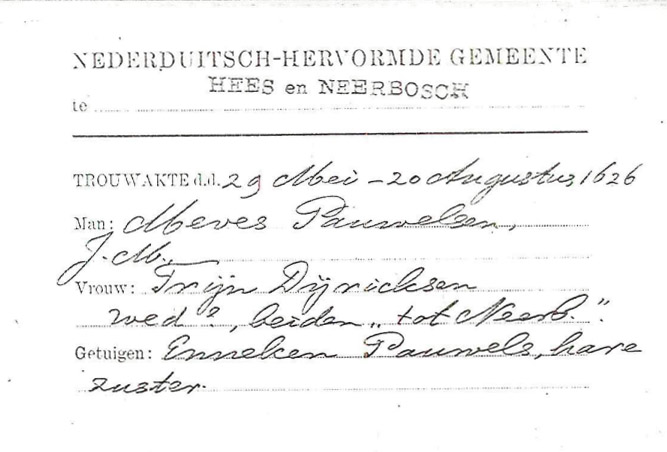 NEDERDUITSCH-HERVORMDE GEMEENTE
HEES en NEERBOSCH
te
TROUWAKTE d.d. 29 Mei - 20 Augustus 1626
Man: Meves Pauwelsen,
J.M.,
Vrouw: Trijn Dijricksen
wed?, beiden „tot Neerb.".
Getuigen: Enneken Pauwels, hare
zuster.